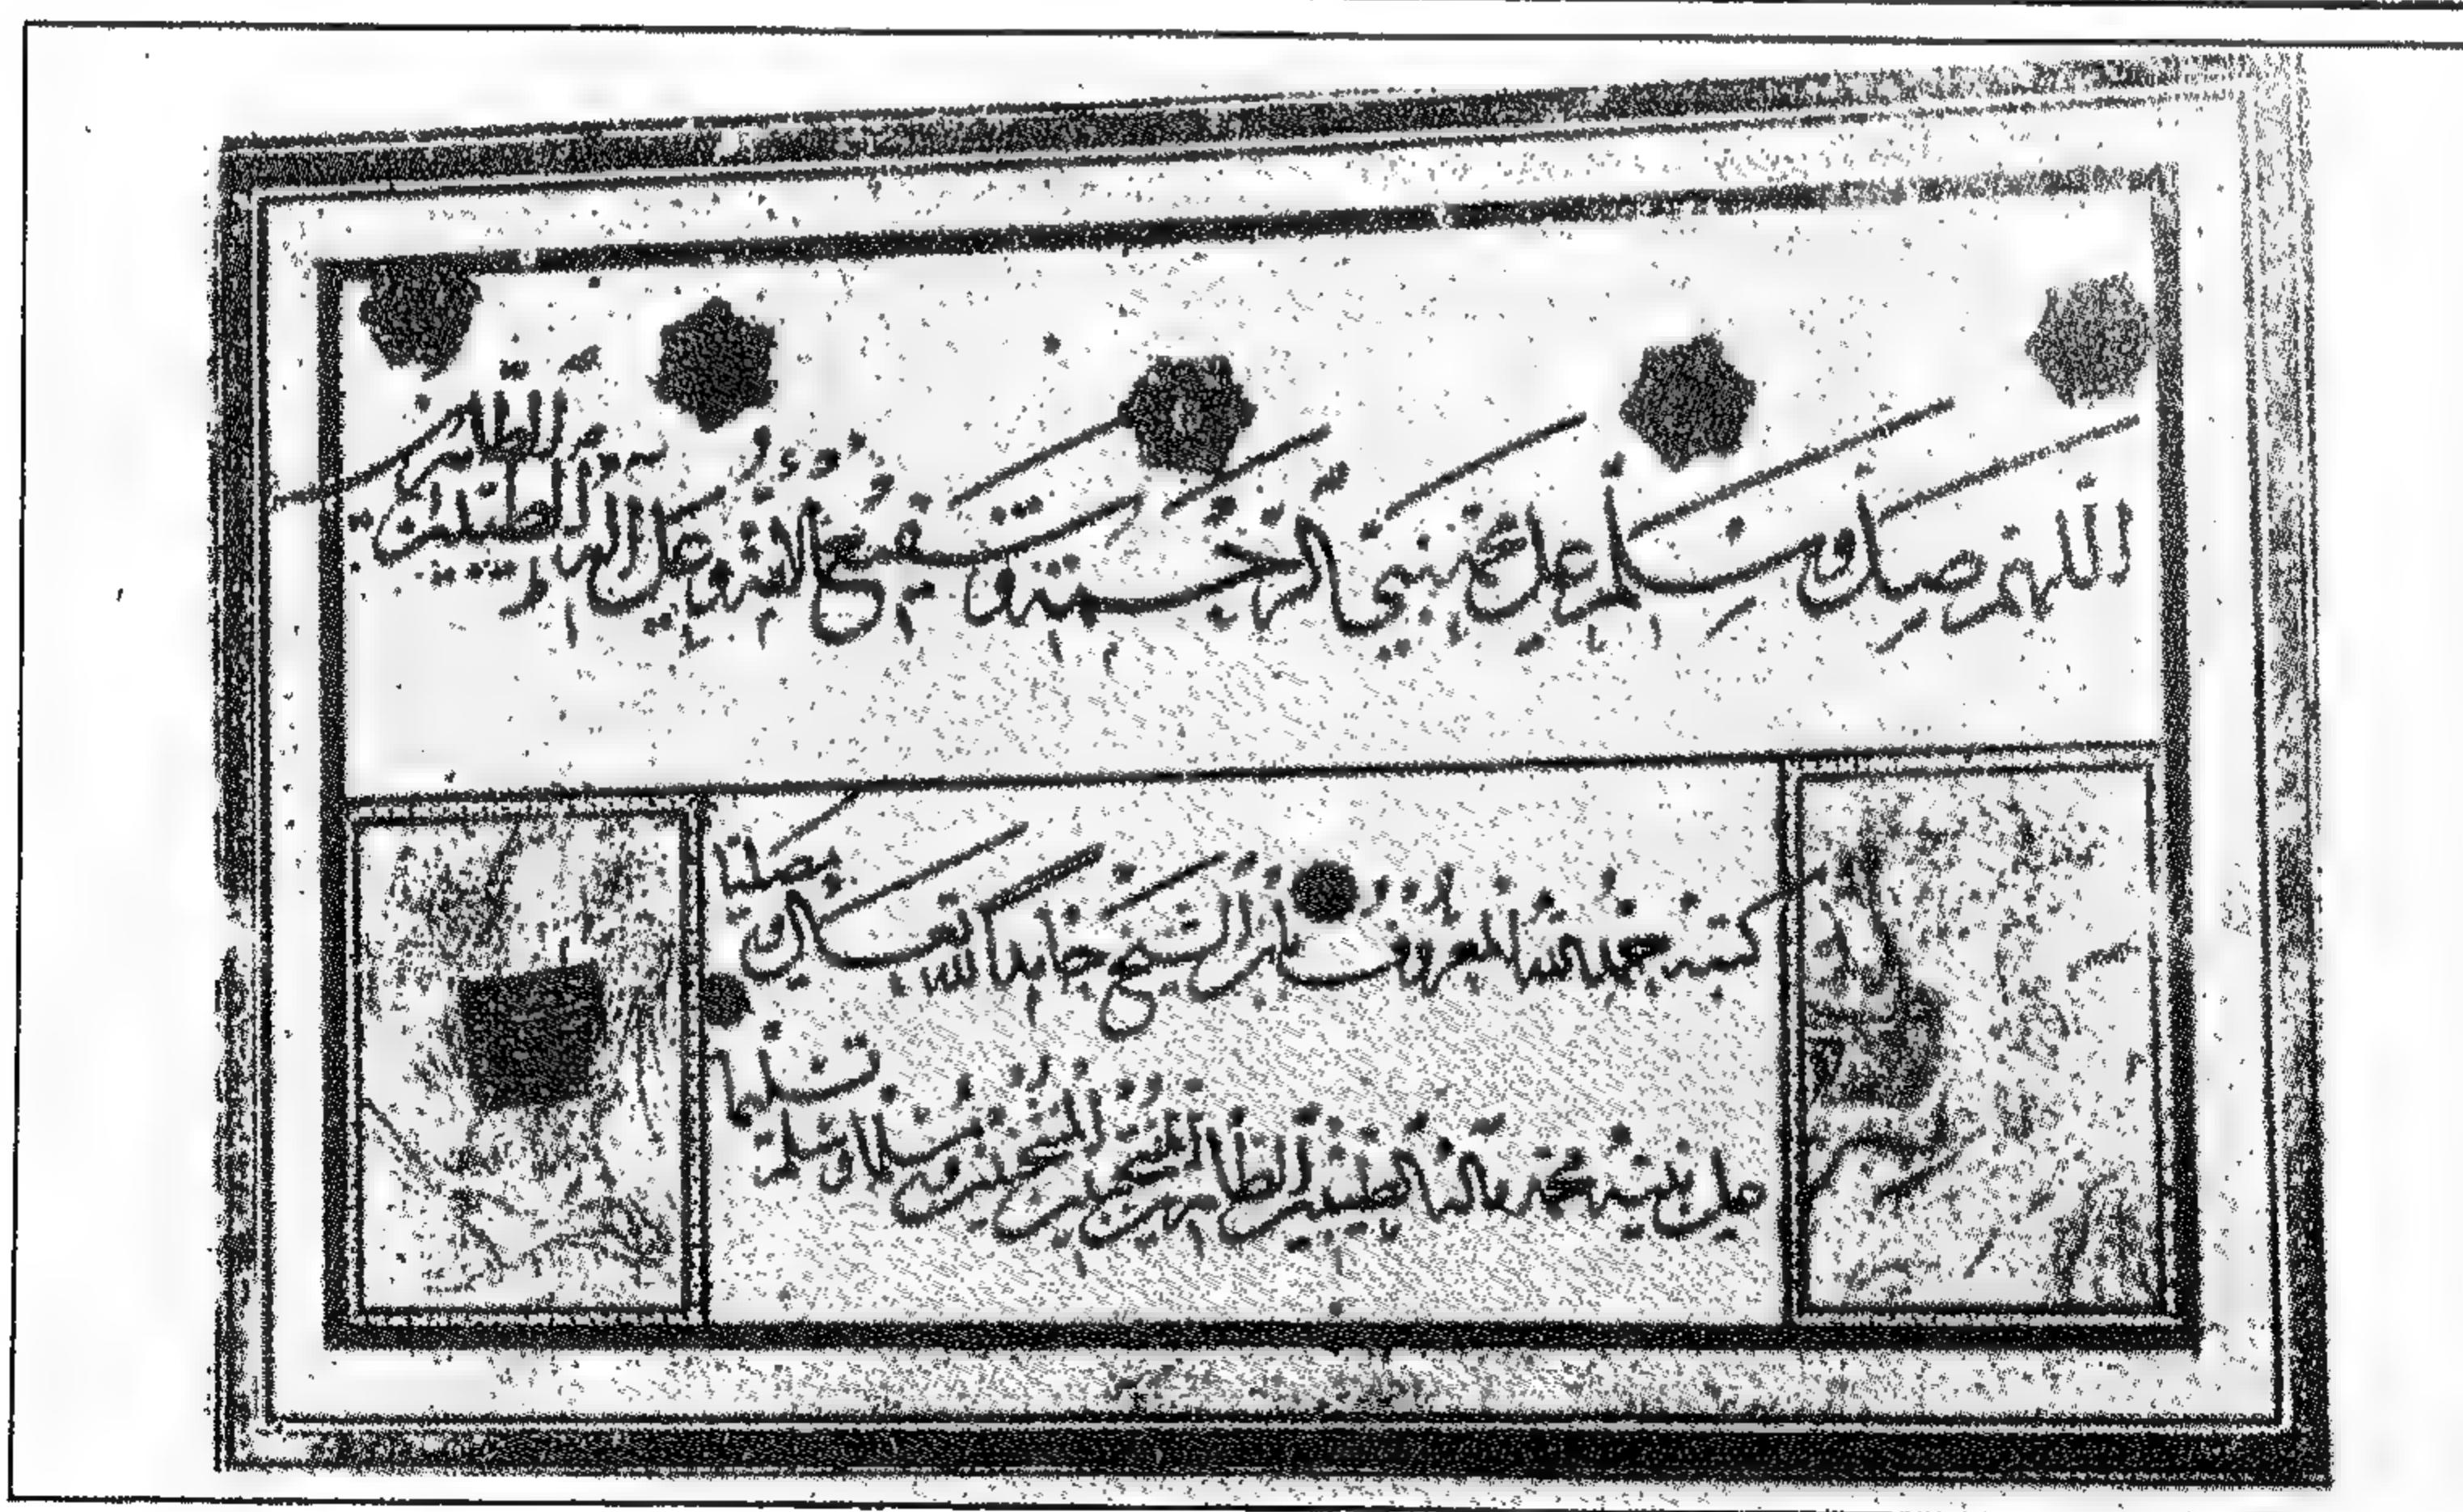 اللهم صل وسلم على محمد نبي الرحمة وشفيع الامة وعلى اله الطيبين الطاهرين
كتبه حمد الله المعروف بابن الشيخ حامدا لله تعالى ومصليا
على نبيه محمد واله الطيبين الطاهرين ومسلما تسليما